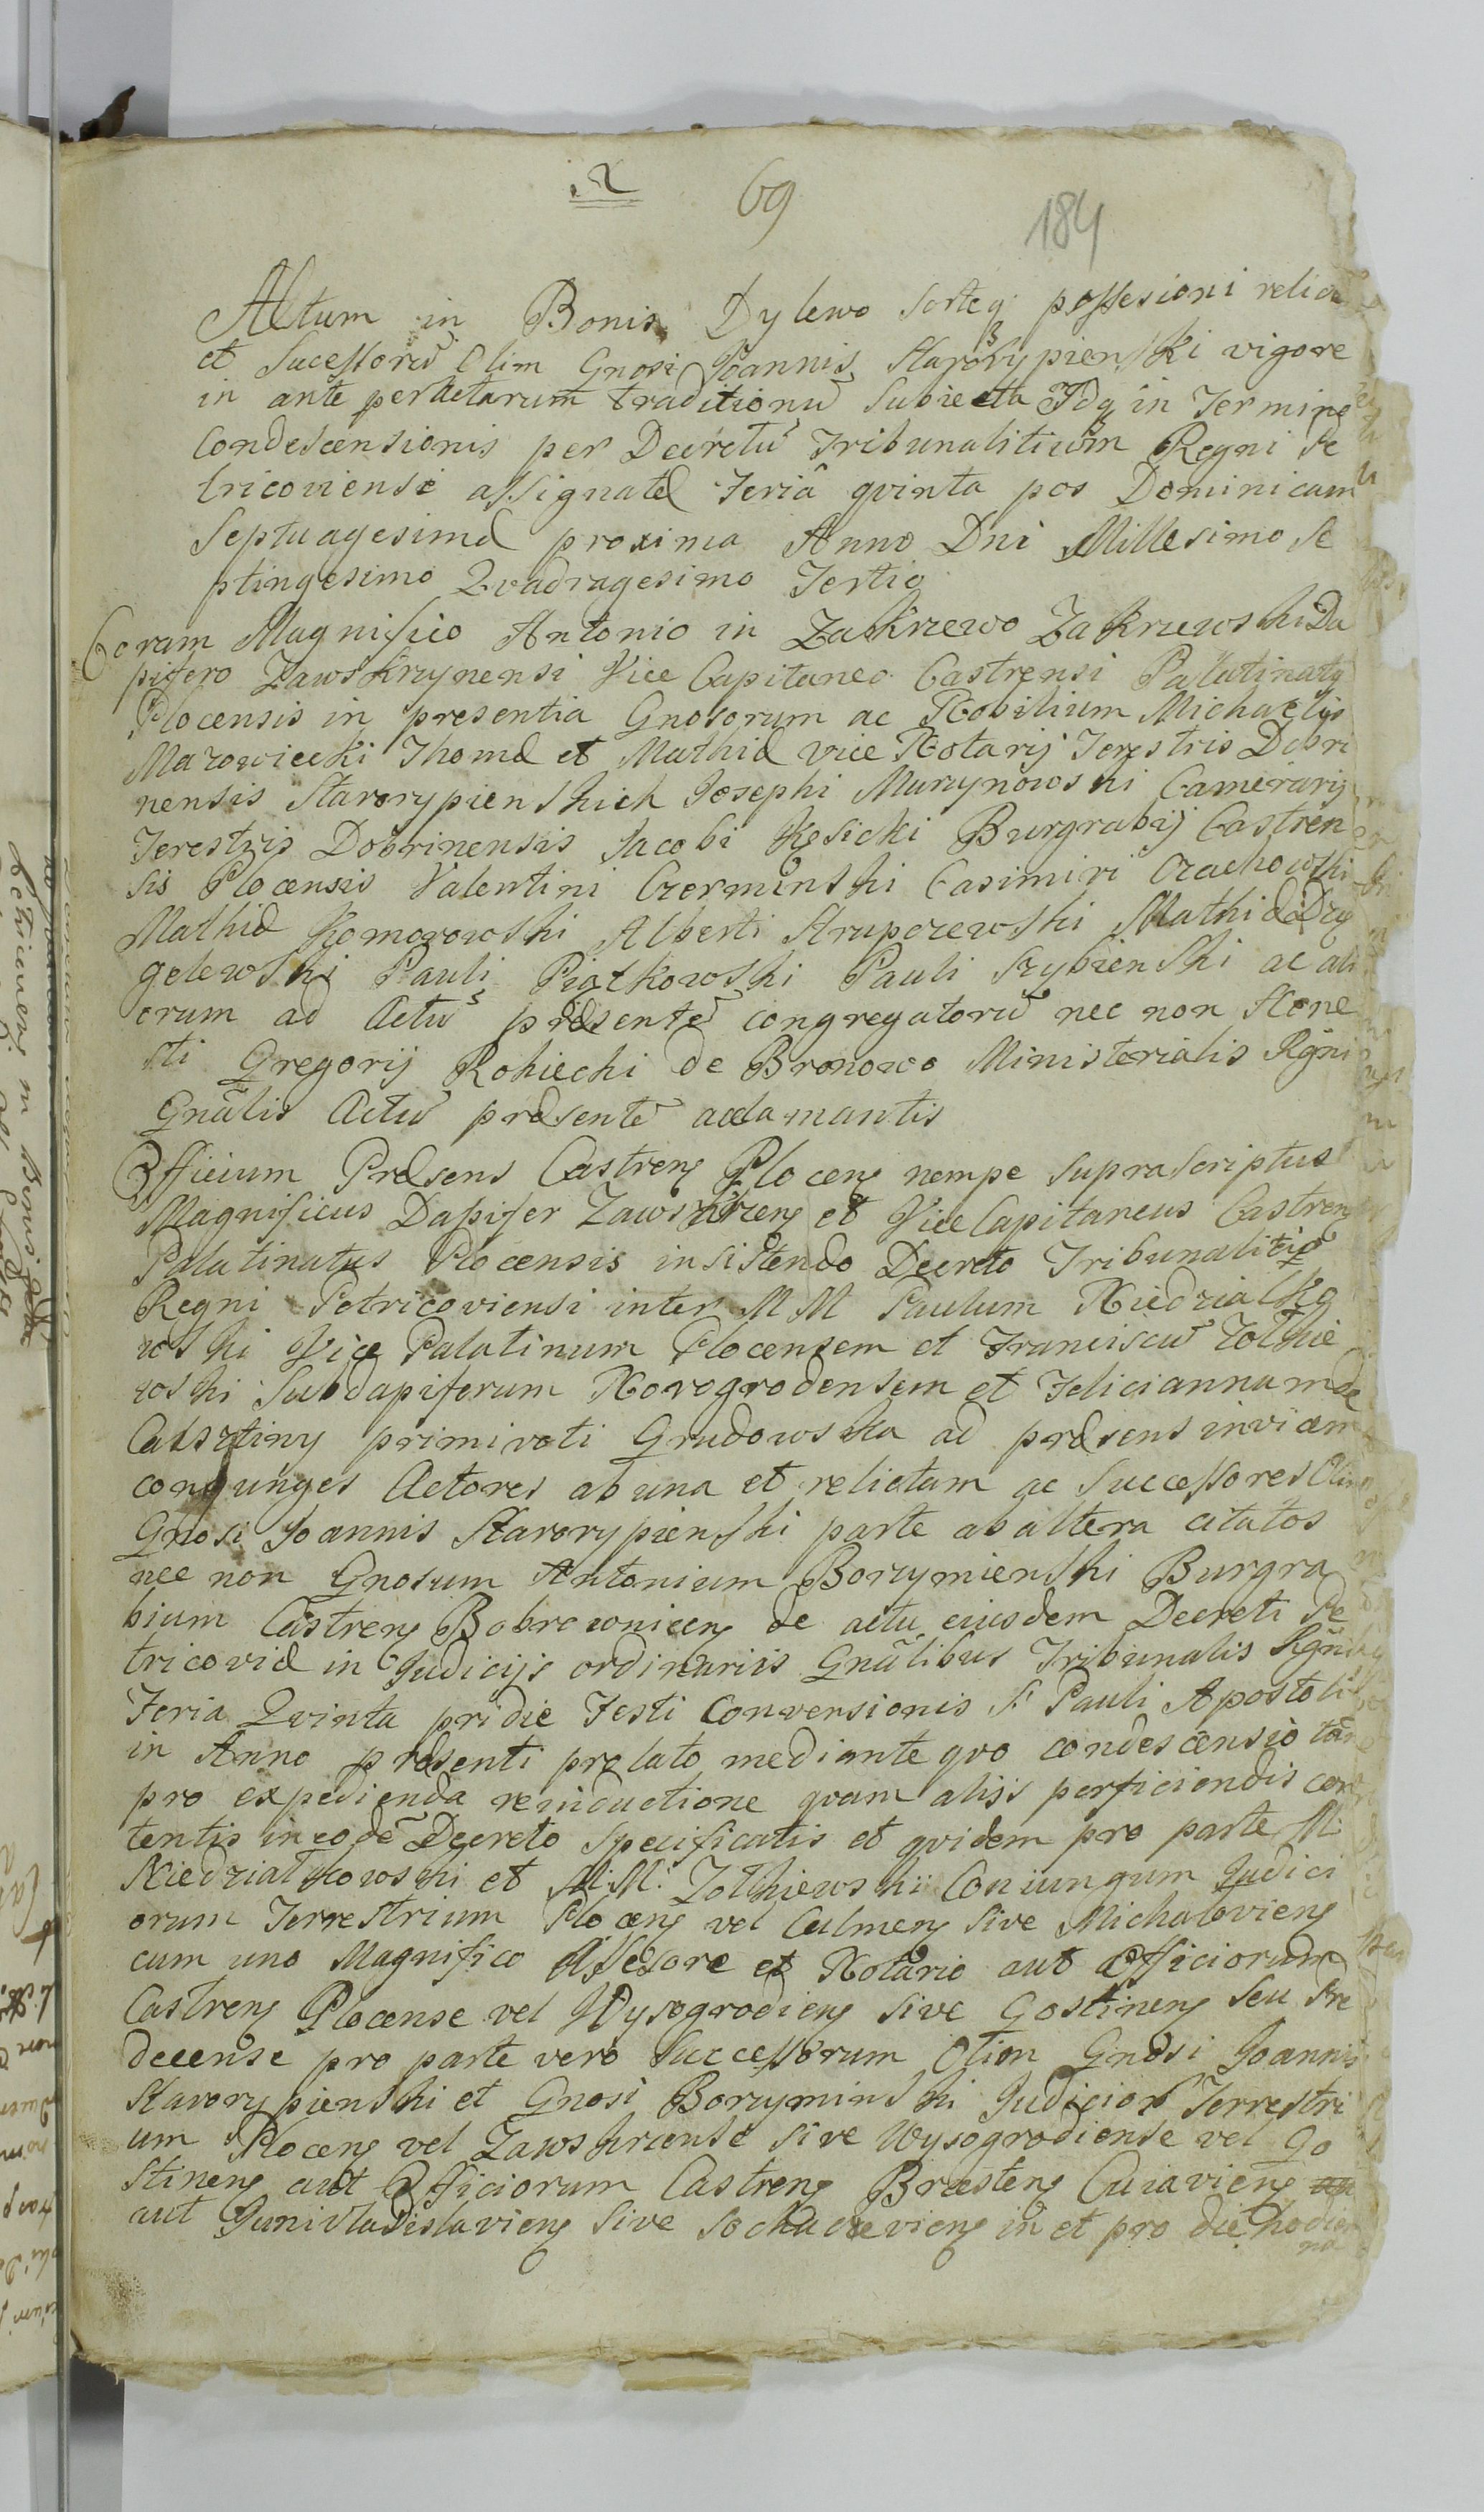 69
184
Actum in Bonis Dylewo sorteq possesioni relicta
et Sucessorū Olim Gnosi Joannis Starorypienski vigore
in ante peractarum traditionū Subiecta Idq in Termino
Condescensionis per Decretū Tribunalitium Regni Pe
tricoviense assignatæ Feriâ qvinta pos Dominicam
Septuagesimæ proxima Anno Dni Millesimo Se
ptingesimo Qvadragesimo Tertio
Coram Magnifico Antonio in Zakrzewo Zakrzewski Da
pifero Zawskrzynensi Vice Capitaneo Castrensi Palatinatq
Plocensis in presentia Gnosorum ac Nobilium Michaelis
Mazowiecki Thomæ et Mathiæ vice Notarij Terestris Dobri
nensis Starorypienskich Josephi Murzynowski Camerarij
Terestris Dobrinensis Jacobi Kęsicki Burgrabij Castren
sis Plocensis Valentini Czerminski Casimiri Czachowski
Mathiæ Komorowski Alberti Strupczewski Mathiæ Dzy
gelewski Pauli Piątkowski Pauli Rzybienski ac ali
orum ad Actū præsentē congregatorū nec non Hone
sti Gregorij Rokiecki de Bronowo Ministerialis Rgni
Gnãlis Actū præsentē acclamantis
Officium Præsens Castreng Ploceng nempe supra scriptus
Magnificus Dapifer Zawskrzeng et ViceCapitaneus Castreng
Palatinatus Plocensis insistendo Decreto Tribunalitio
Regni Petricoviensi inter M M Paulum Niedzialko
wski Vice Palatinum Plocensem et Franciscū Zolkie
wski Subdapiferum Novogrodensem et Feliciannam de
Calsztiny primivoti Grudowska ad præsens invicem
conjunges Actores ab una et relictam ac Successores Olim
Gnosi Joannis Starorypienski parte ab altera citatos
nec non Gnosum Antonium Borzymienski Burgra
bium Castreng Bobrowniceng de actu eiusdem Decreti Pe
tricoviæ in Judicijs ordinariis Gnãlibus Tribunalis Rgni
Feria Qvinta pridie Festi Conversionis S. Pauli Apostoli
in Anno præsenti prolato mediante qvo condescensio tam
pro expedienda reinductione qvam alijs perficiendis con
tentis in eodē Decreto specificatis et qvidem pro parte M.
Niedzialkowski et M.M. Zolkiewskii Coniungum Judici
orum Terrestrium Ploceng vel Culmeng sive Michaloviens
cum uno Magnifico Assesore et Notario aut Officiorum
Castreng Plocense vel Wysogrodieng sive Gostineng seu Bre
decense pro parte vero Successorum Olim Gnosi Joannis
Starorypienski et Gnosi Borzyminski Judicior Terrestri
um Ploceng vel Zawskrzense sive Wysogrodiense vel Go
stineng aut Officiorum Castreng Bresteng Cuiavieng
aut Junivladislavieng sive Sochaczevieng in et pro die hodier
na